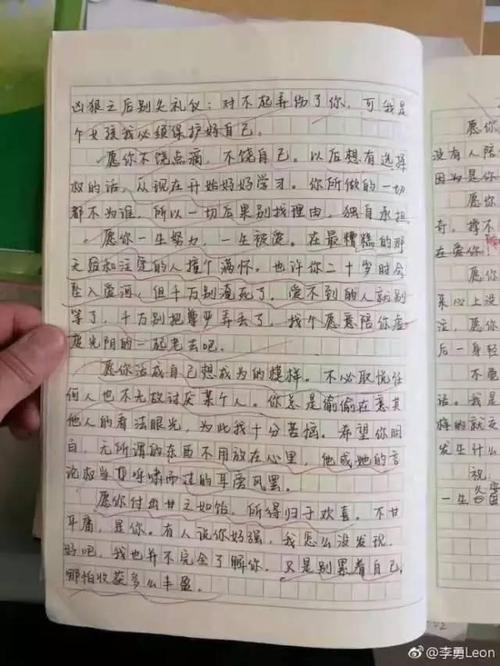 凶狠之后别失礼仪：对不起弄伤了你，可我是
个女孩我必须保护好自己。
愿你不饶点滴，不饶自己。以后想有选择
权的话，从现在开始好好学习。你所做的一切
都不为谁，所以一切后果别找理由，独自承担。
愿你一生努力，一生被爱。在最糟糕的那
天后和注定的人撞个满怀。也许你二十岁时会
坠入爱河，但千万别淹死了，爱不到的人就别
等了，千万别把尊严弄丢了，找个愿意陪你虚
度光阴的一起老去吧。
愿你活成自己想成为的模样。不必取悦任
何人也不无故讨厌某个人。你总是偷偷在意其
他人的看法眼光，为此我十分苦恼。希望你明
白，无所谓的东西不用放在心里，他或她的言
论权当呼啸而过的耳旁风罢。
愿你付出甘之如饴，所得归于欢喜。不甘
平庸，是你。有人说你好强，我怎么没发现。
好吧，我也并不完全了解你。只是别累着自己，
哪怕收获多么丰盈。
愿你
没有人陪
因为是你
愿你
奇，撑不
在爱你
愿你
来心上没
注，愿你
后一身轻
不要
话。我是
发生什么
@李勇Leon